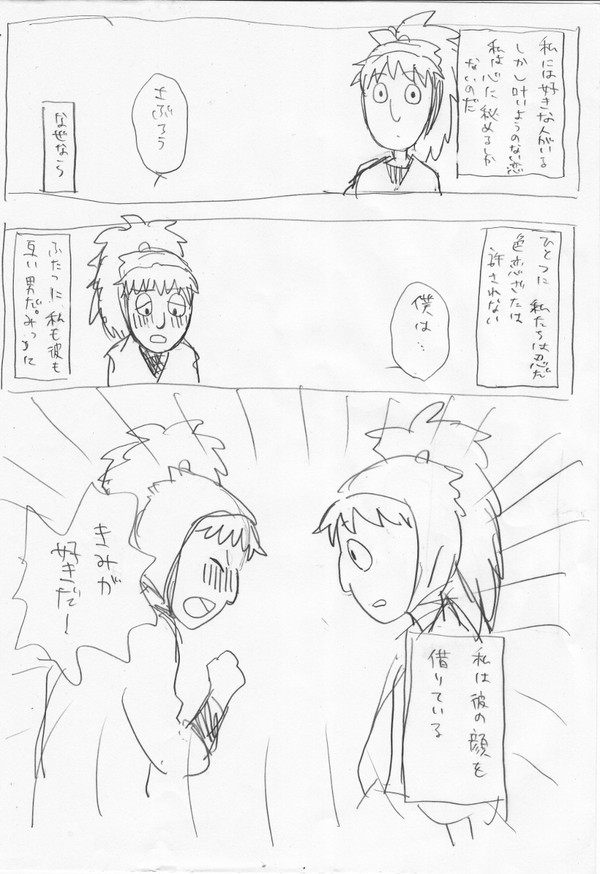 私には好きな人がいる
しかし叶いようのない恋
私は心に秘めるしか
ないのだ
さぶろう
なぜなら
ひとつに 私たちは忍だ
色恋ざたは
許されない
僕は…
ふたつに 私も彼も
互い男だ。みっつに
きみが
好きだー!
私は彼の顔を
借りている